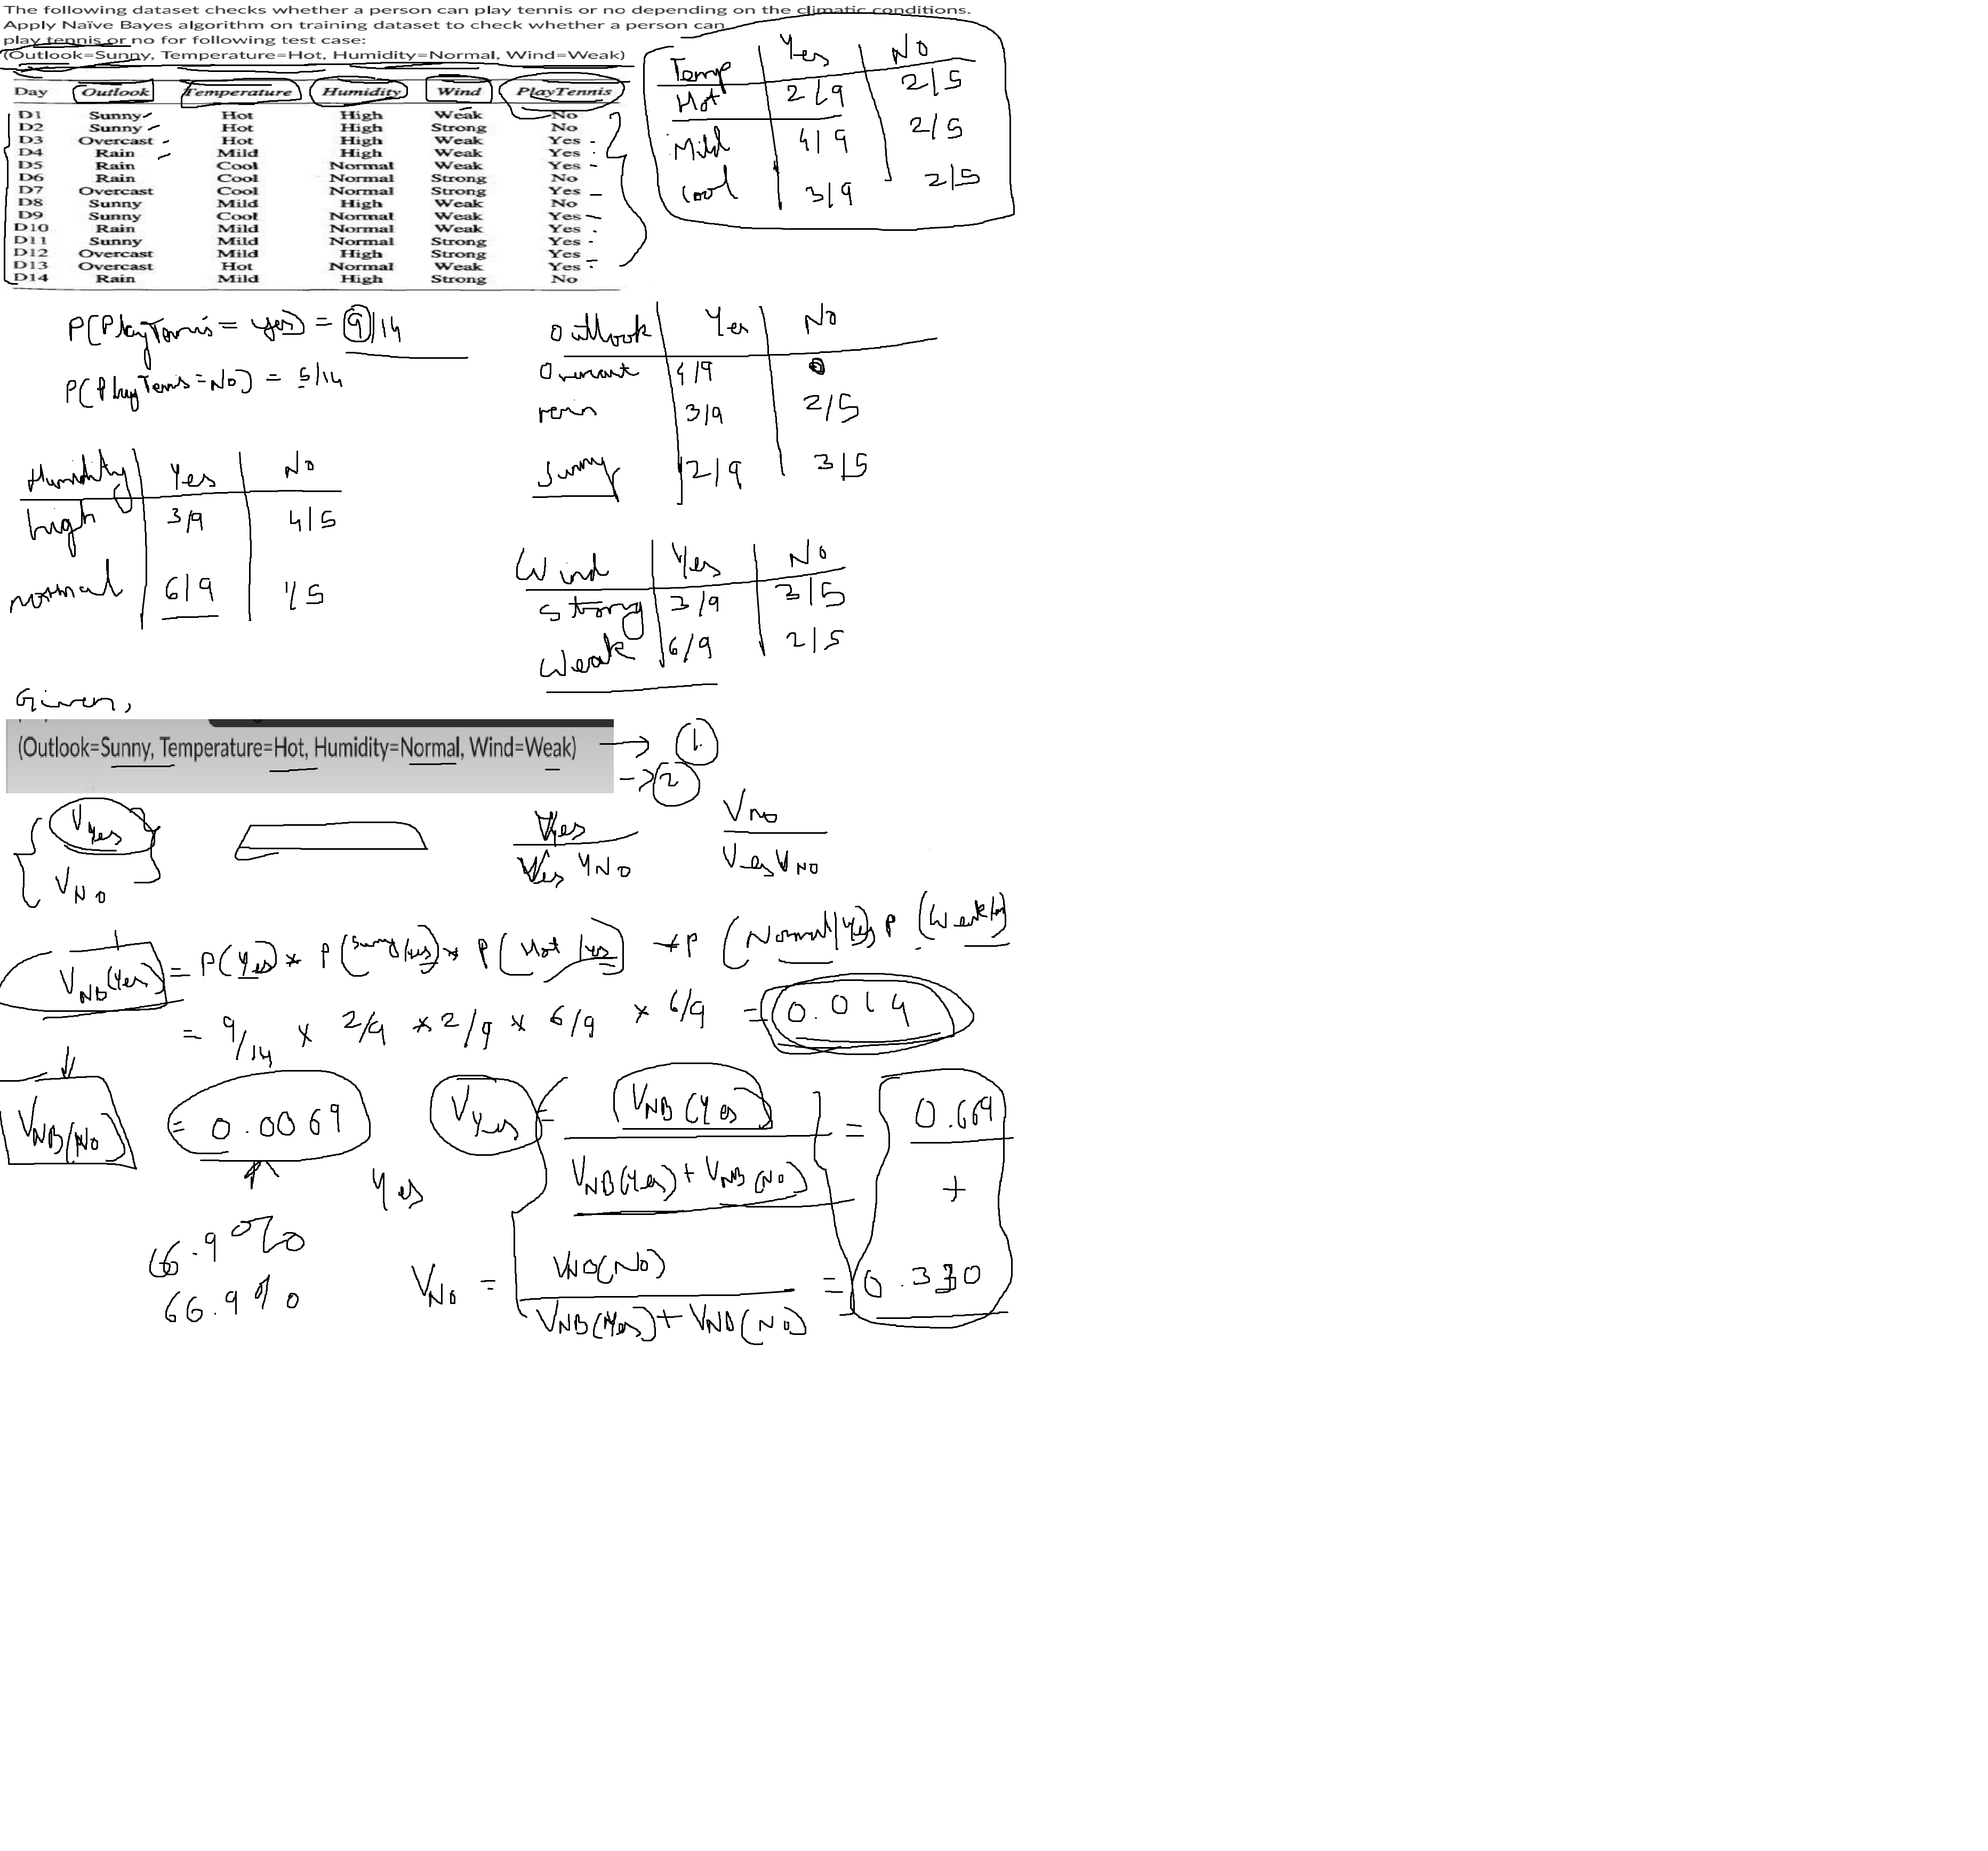 The following dataset checks whether a person can play tennis or no depending on the climatic conditions.
Apply Naïve Bayes algorithm on training dataset to check whether a person can
play tennis or no for following test case:
(Outlook=Sunny, Temperature=Hot, Humidity=Normal, Wind=Weak)
Day Outlook Temperature Humidity Wind PlayTennis
D1 Sunny Hot High Weak No
D2 Sunny Hot High Strong No
D3 Overcast Hot High Weak Yes
D4 Rain Mild High Weak Yes
D5 Rain Cool Normal Weak Yes
D6 Rain Cool Normal Strong No
D7 Overcast Cool Normal Strong Yes
D8 Sunny Mild High Weak No
D9 Sunny Cool Normal Weak Yes
D10 Rain Mild Normal Weak Yes
D11 Sunny Mild Normal Strong Yes
D12 Overcast Mild High Strong Yes
D13 Overcast Hot Normal Weak Yes
D14 Rain Mild High Strong No
Temp Yes No
Hot 2/9 2/5
Mild 4/9 2/5
Cool 3/9 2/5
P(PlayTennis = yes) = 9/14
P(PlayTennis = No) = 5/14
Outlook Yes No
Overcast 4/9 0
rain 3/9 2/5
Sunny 2/9 3/5
Humidity Yes No
high 3/9 4/5
normal 6/9 1/5
Wind Yes No
Strong 3/9 3/5
Weak 6/9 2/5
Given,
(Outlook=Sunny, Temperature=Hot, Humidity=Normal, Wind=Weak) → 1.
→ 2
VYes
VNo
VNo
VNB(Yes) = P(Yes) * P(Sunny/yes) * P(Hot/yes) * P(Normal/Yes) P(Weak/
= 9/14 x 2/9 * 2/9 * 6/9 x 6/9 = 0.014
VNB(No) = 0.0069
VYes = VNB(Yes) / VNB(Yes) + VNB(No) = 0.669
+
Yes
66.9%
66.9%
VNo = VNB(No) / VNB(Yes) + VNB(No) = 0.330